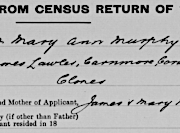 ROM CENSUS RETURN OF
Mary Ann Murphy
Lawles, Carnmore
Clones
nd Mother of Applicant,
James & Mary
y (if other than Father)
ant resided in 18